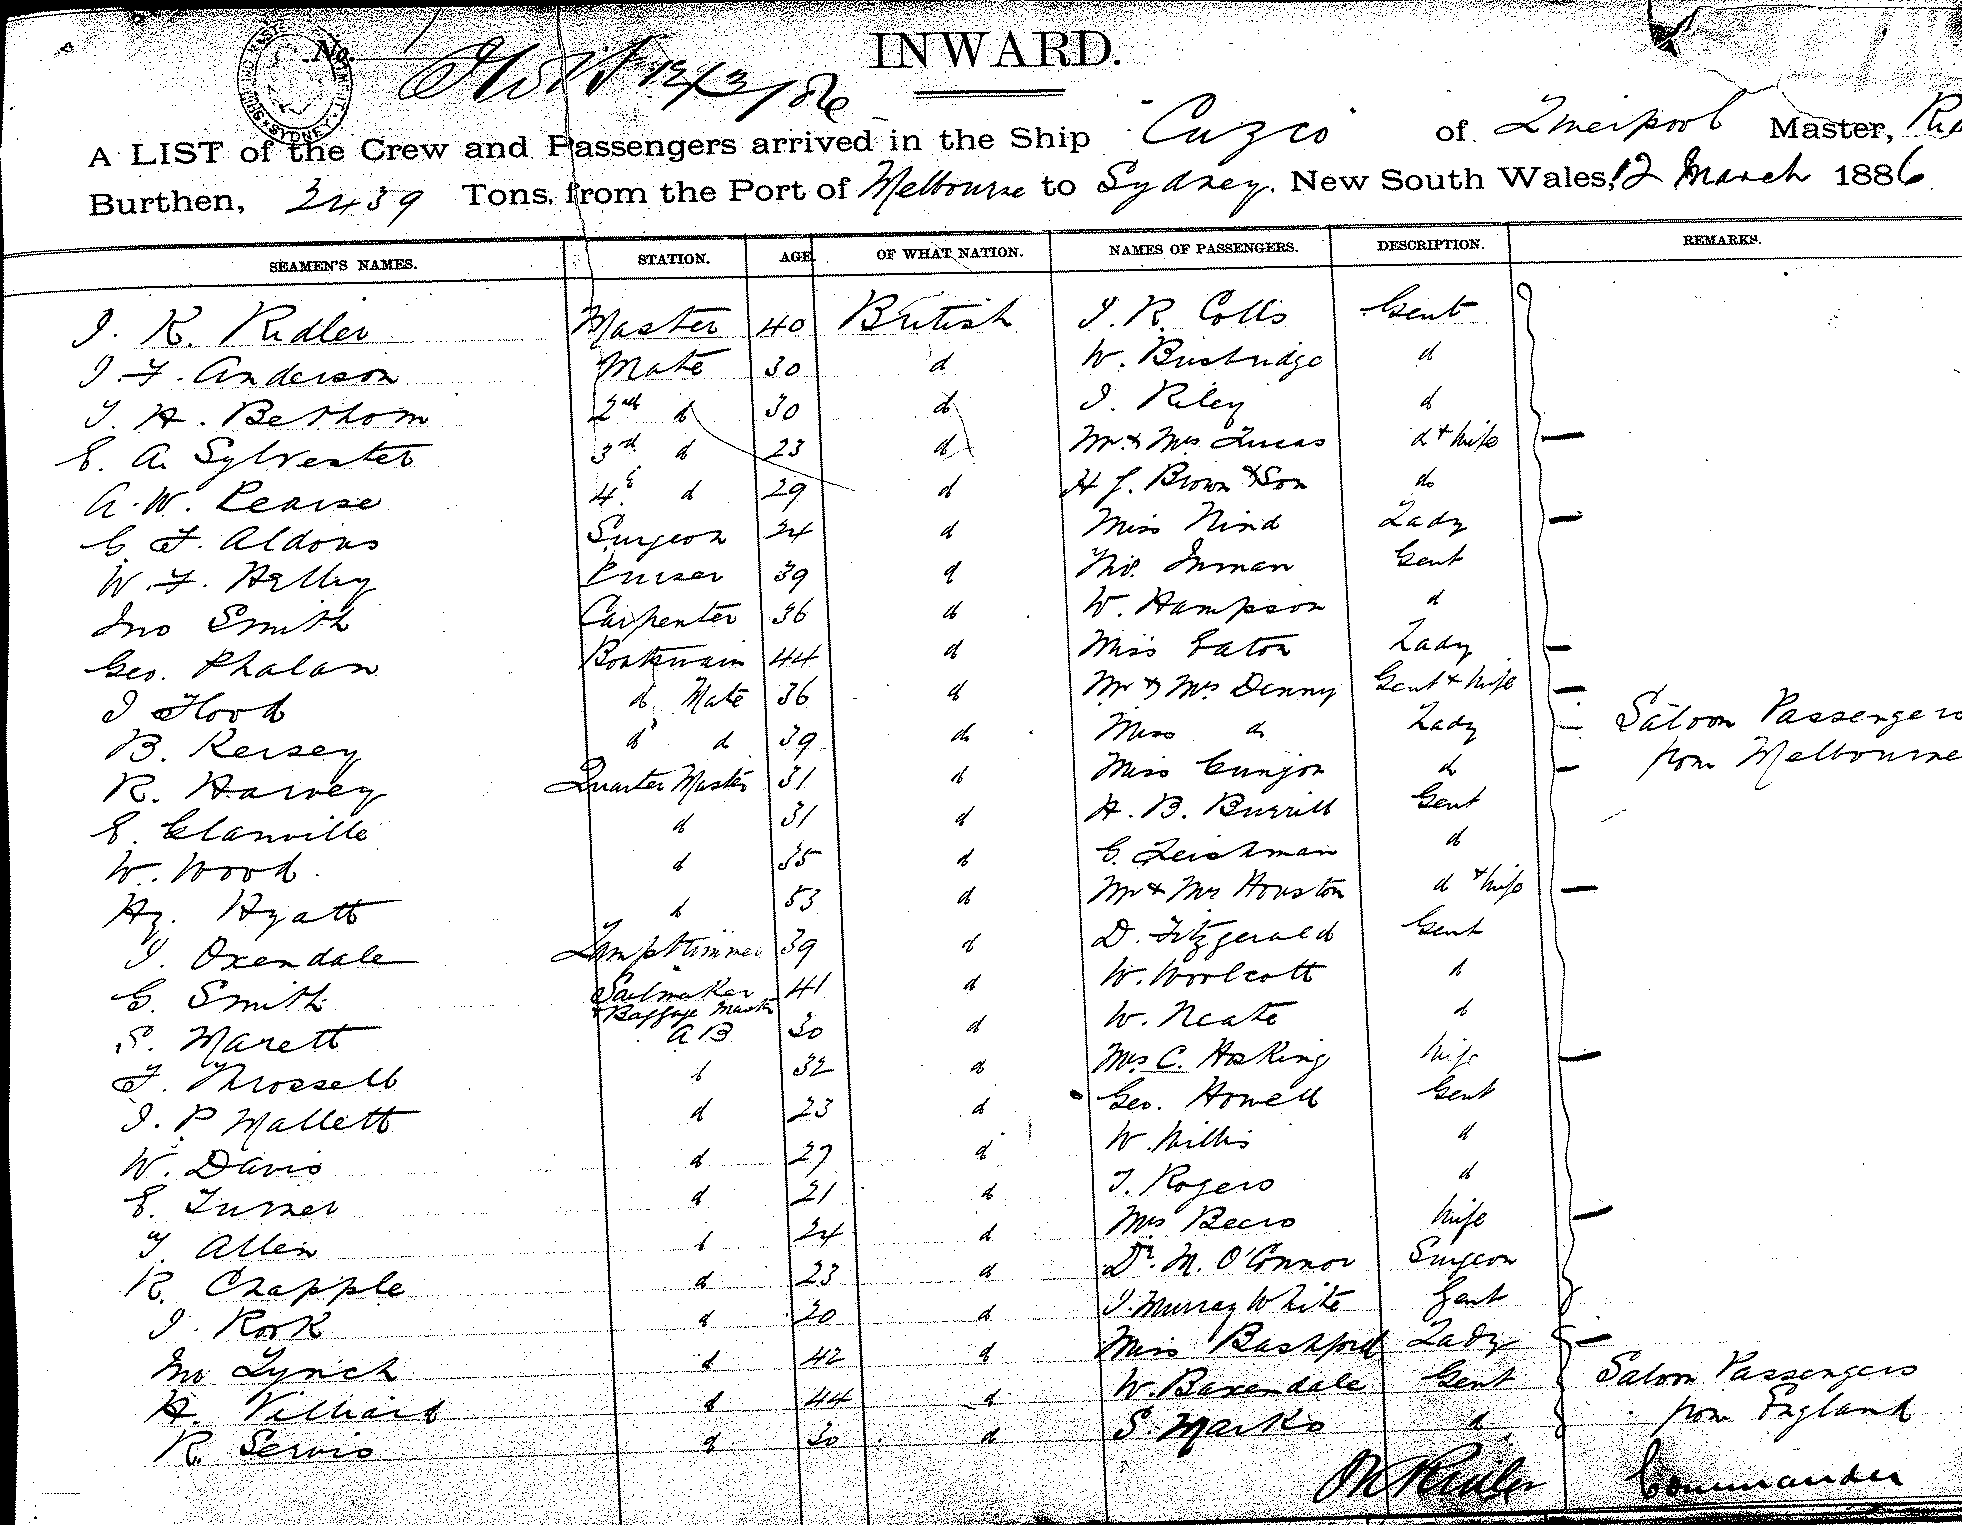 No.
INWARD.
A LIST of the Crew and Passengers arrived in the Ship "Cuzco" of Liverpool Master,
Burthen, 2439 Tons, from the Port of Melbourne to Sydney, New South Wales, 12 March 1886
SEAMEN'S NAMES. STATION. AGE OF WHAT NATION. NAMES OF PASSENGERS. DESCRIPTION. REMARKS.
J. K. Ridler Master 40 British J. R. Colls Gent
J. F. Anderson Mate 30 d W. Busbridge d
T. H. Bethom 2nd d 30 d J. Riley d
E. A. Sylvester 3rd d 23 d Mr & Mrs Lucas d & Wife
A. W. Pearse 4th d 29 d H J. Brown & Son do
C. F. Aldous Surgeon 24 d Miss Nind Lady
W. F. Purser 39 d Thos. Inman Gent
Jno Smith Carpenter 36 d W. Hampson d
Geo. Phalan Boatswain 44 d Miss Eaton Lady
J Flood d Mate 36 d Mr & Mrs Denny Gent & Wife
B. Kersey d d 39 d Miss d Lady Saloon Passengers
R. Harvey Quarter Master 31 d Miss d from Melbourne
E. Glanville d 31 d H. B. Burrill Gent
W. Wood d 35 d C. Leishman d
Hy. Hyatt d 53 d Mr & Mrs Houston d & Wife
J. Oxendale Lamptrimmer 39 d D. Fitzgerald Gent
G. Smith Sailmaker & Baggage Master 41 d W. Woolcott d
S. Marett AB 30 d W. Neate d
F. Throssell d 32 d Mrs C. Hosking Wife
J. P Mallett d 23 d Geo. Howell Gent
W. Davis d 27 d W. Willis d
E. Turner d 21 d T. Rogers d
T Allen d 24 d Mrs Wife
R. Chapple d 23 d Dr. M. O'Connor Surgeon
J. Rook d 20 d J. Murray White Gent
Jno Lynch d 42 d Miss Bashford Lady
H. d 44 d W. Baxendale Gent Saloon Passengers
R. Servis d 30 d S. Marks d from England
Ridler Commander